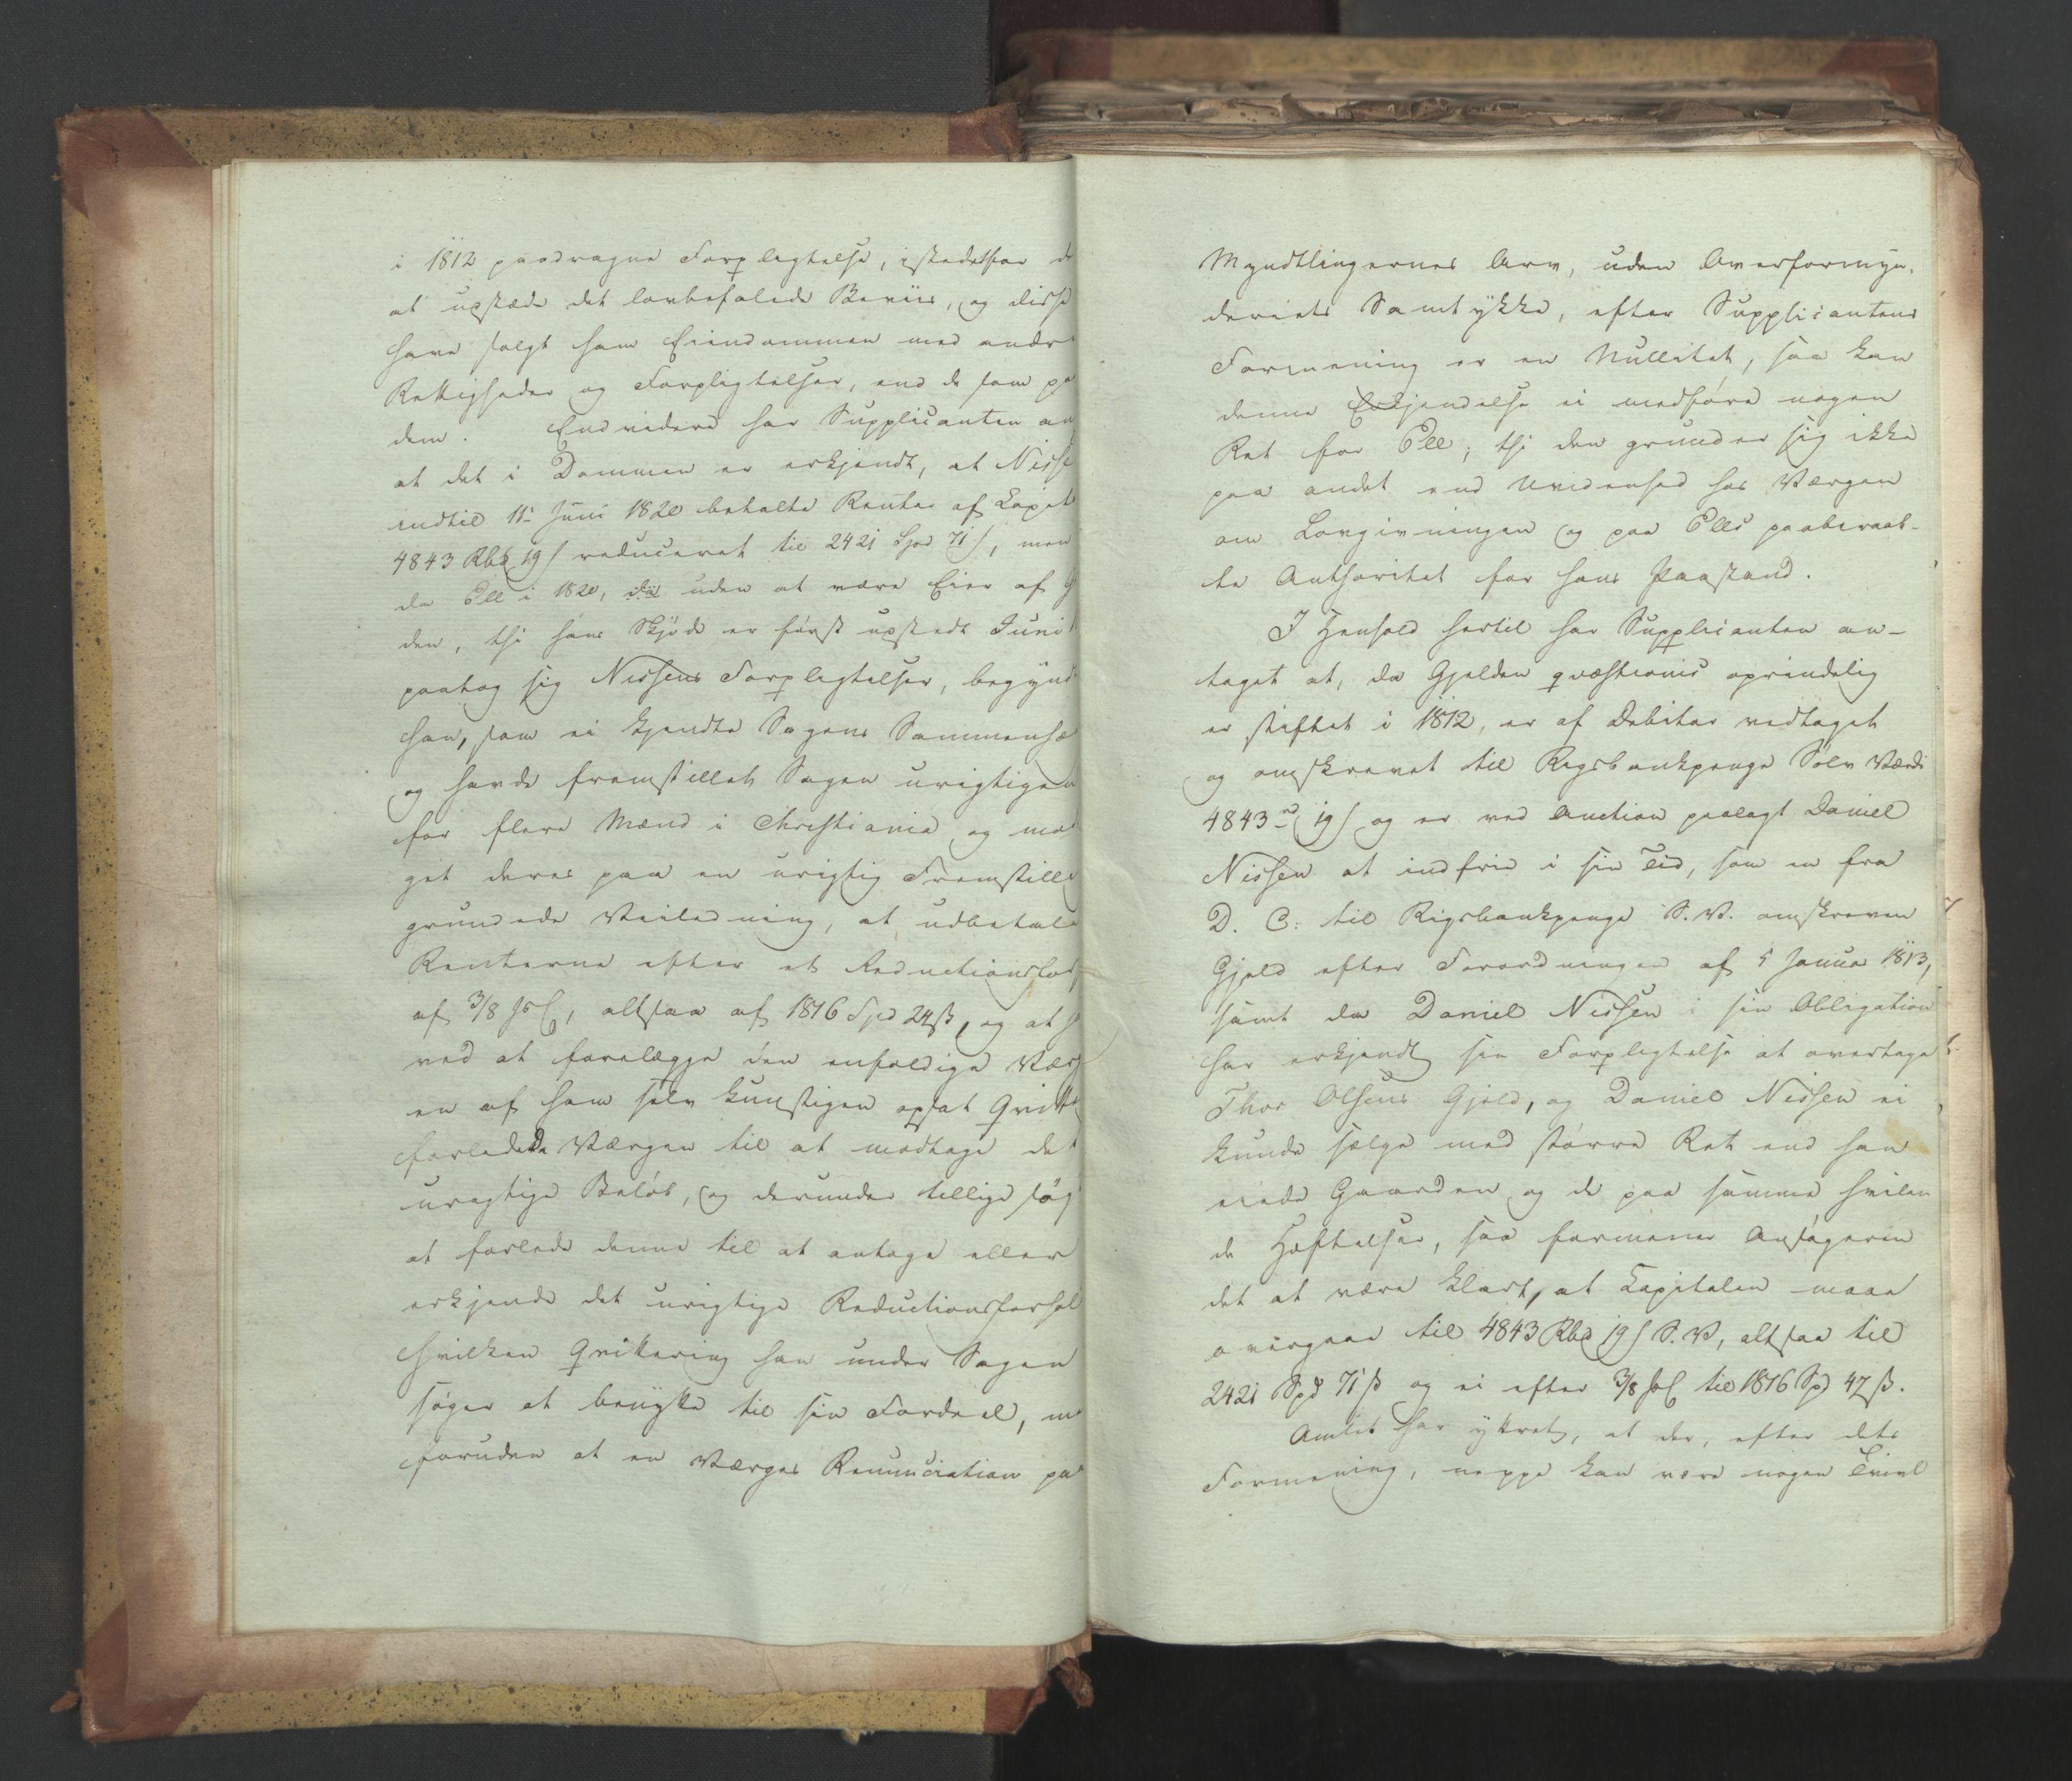 i 1812 paadragne Forpligtelse, istedetfor d
at udstæde det lovbefalede Beviis, og disse
have solgt ham Eiendommen med andr
Rettigheder og Forpligtelser, end de som pa
dem. Endvidere har Supplicanten an
at det i Dommen er erkjendt, at Nisse
indtil 11 Juni 1820 betalte Renter af Capit
4843 Rbd 19 s reduceret til 2421 Spd 71 s, men
da Ell i 1820, uden at være Eier af G
den, thi hans Skjøde er først udstedt Juni
paatog sig Nissens Forpligtelser, begynd
han, som ei kjendte Sagens Sammenhæ
og havde fremstillet Sagen urigtigen
for flere Mænd i Christiania og mod
get deres paa en urigtig Fremstill
grundede Veiledning, at udbetale
Renterne efter et Reductionsfor
af 3/8, altsaa af 1816 Spd 24 ß, og at h
ved at forelægge den enfoldige Vær
en af ham selv kunstigen opsat Qvitt
forledede Værgen til at modtage det
urigtige Beløb, og derunder tillige søg
at forlede denne til at antage eller
erkjende det urigtige Reductionsforhol
hvilken Qvittering han under Sagen
søger at benytte til sin Fordeel, m
foruden at en Værges Renunciation pa
Myndtlingernes Arv, uden Overformyn-
deriets Samtykke, efter Supplicantens
Formening er en Nullitet, saa kan
denne Erkjendelse ei medføre nogen
Ret for Ell; thi den grunder sig ikke
paa andet end Uvidenhed hos Værgen
om Lovgivningen og paa Ells paaberaab-
te Authoritet for hans Paastand.
I Henhold hertil har Supplicanten an-
taget at, da Gjelden qvæstionis oprindelig
er stiftet i 1812, er af Debitor vedtaget
og omskrevet til Rigsbankpenge Sølv Værdi
4843 rd 19 s og er ved Auction paalagt Daniel
Nissen at indfrie i sin Tid, som en fra
D. C. til Rigsbankpenge S. V. omskreven
Gjeld efter Forordningen af 5 Januar 1813,
samt da Daniel Nissen i sin Obligation
har erkjendt sin Forpligtelse at overtage
Thor Olsens Gjeld, og Daniel Nissen ei
kunde sælge med større Ret end han
eiede Gaarden og de paa samme hvilen
de Hæftelser, saa formener Ansøgeren
det at være klart, at Capitalen maae
overgaae til 4843 Rbd 19 s S. V, altsaa til
2421 Spd 71 ß og ei efter 3/8 til 1816 Spd 47 ß.
Amtet har yttret, at der, efter dets
Formening, neppe kan være nogen Tvivl